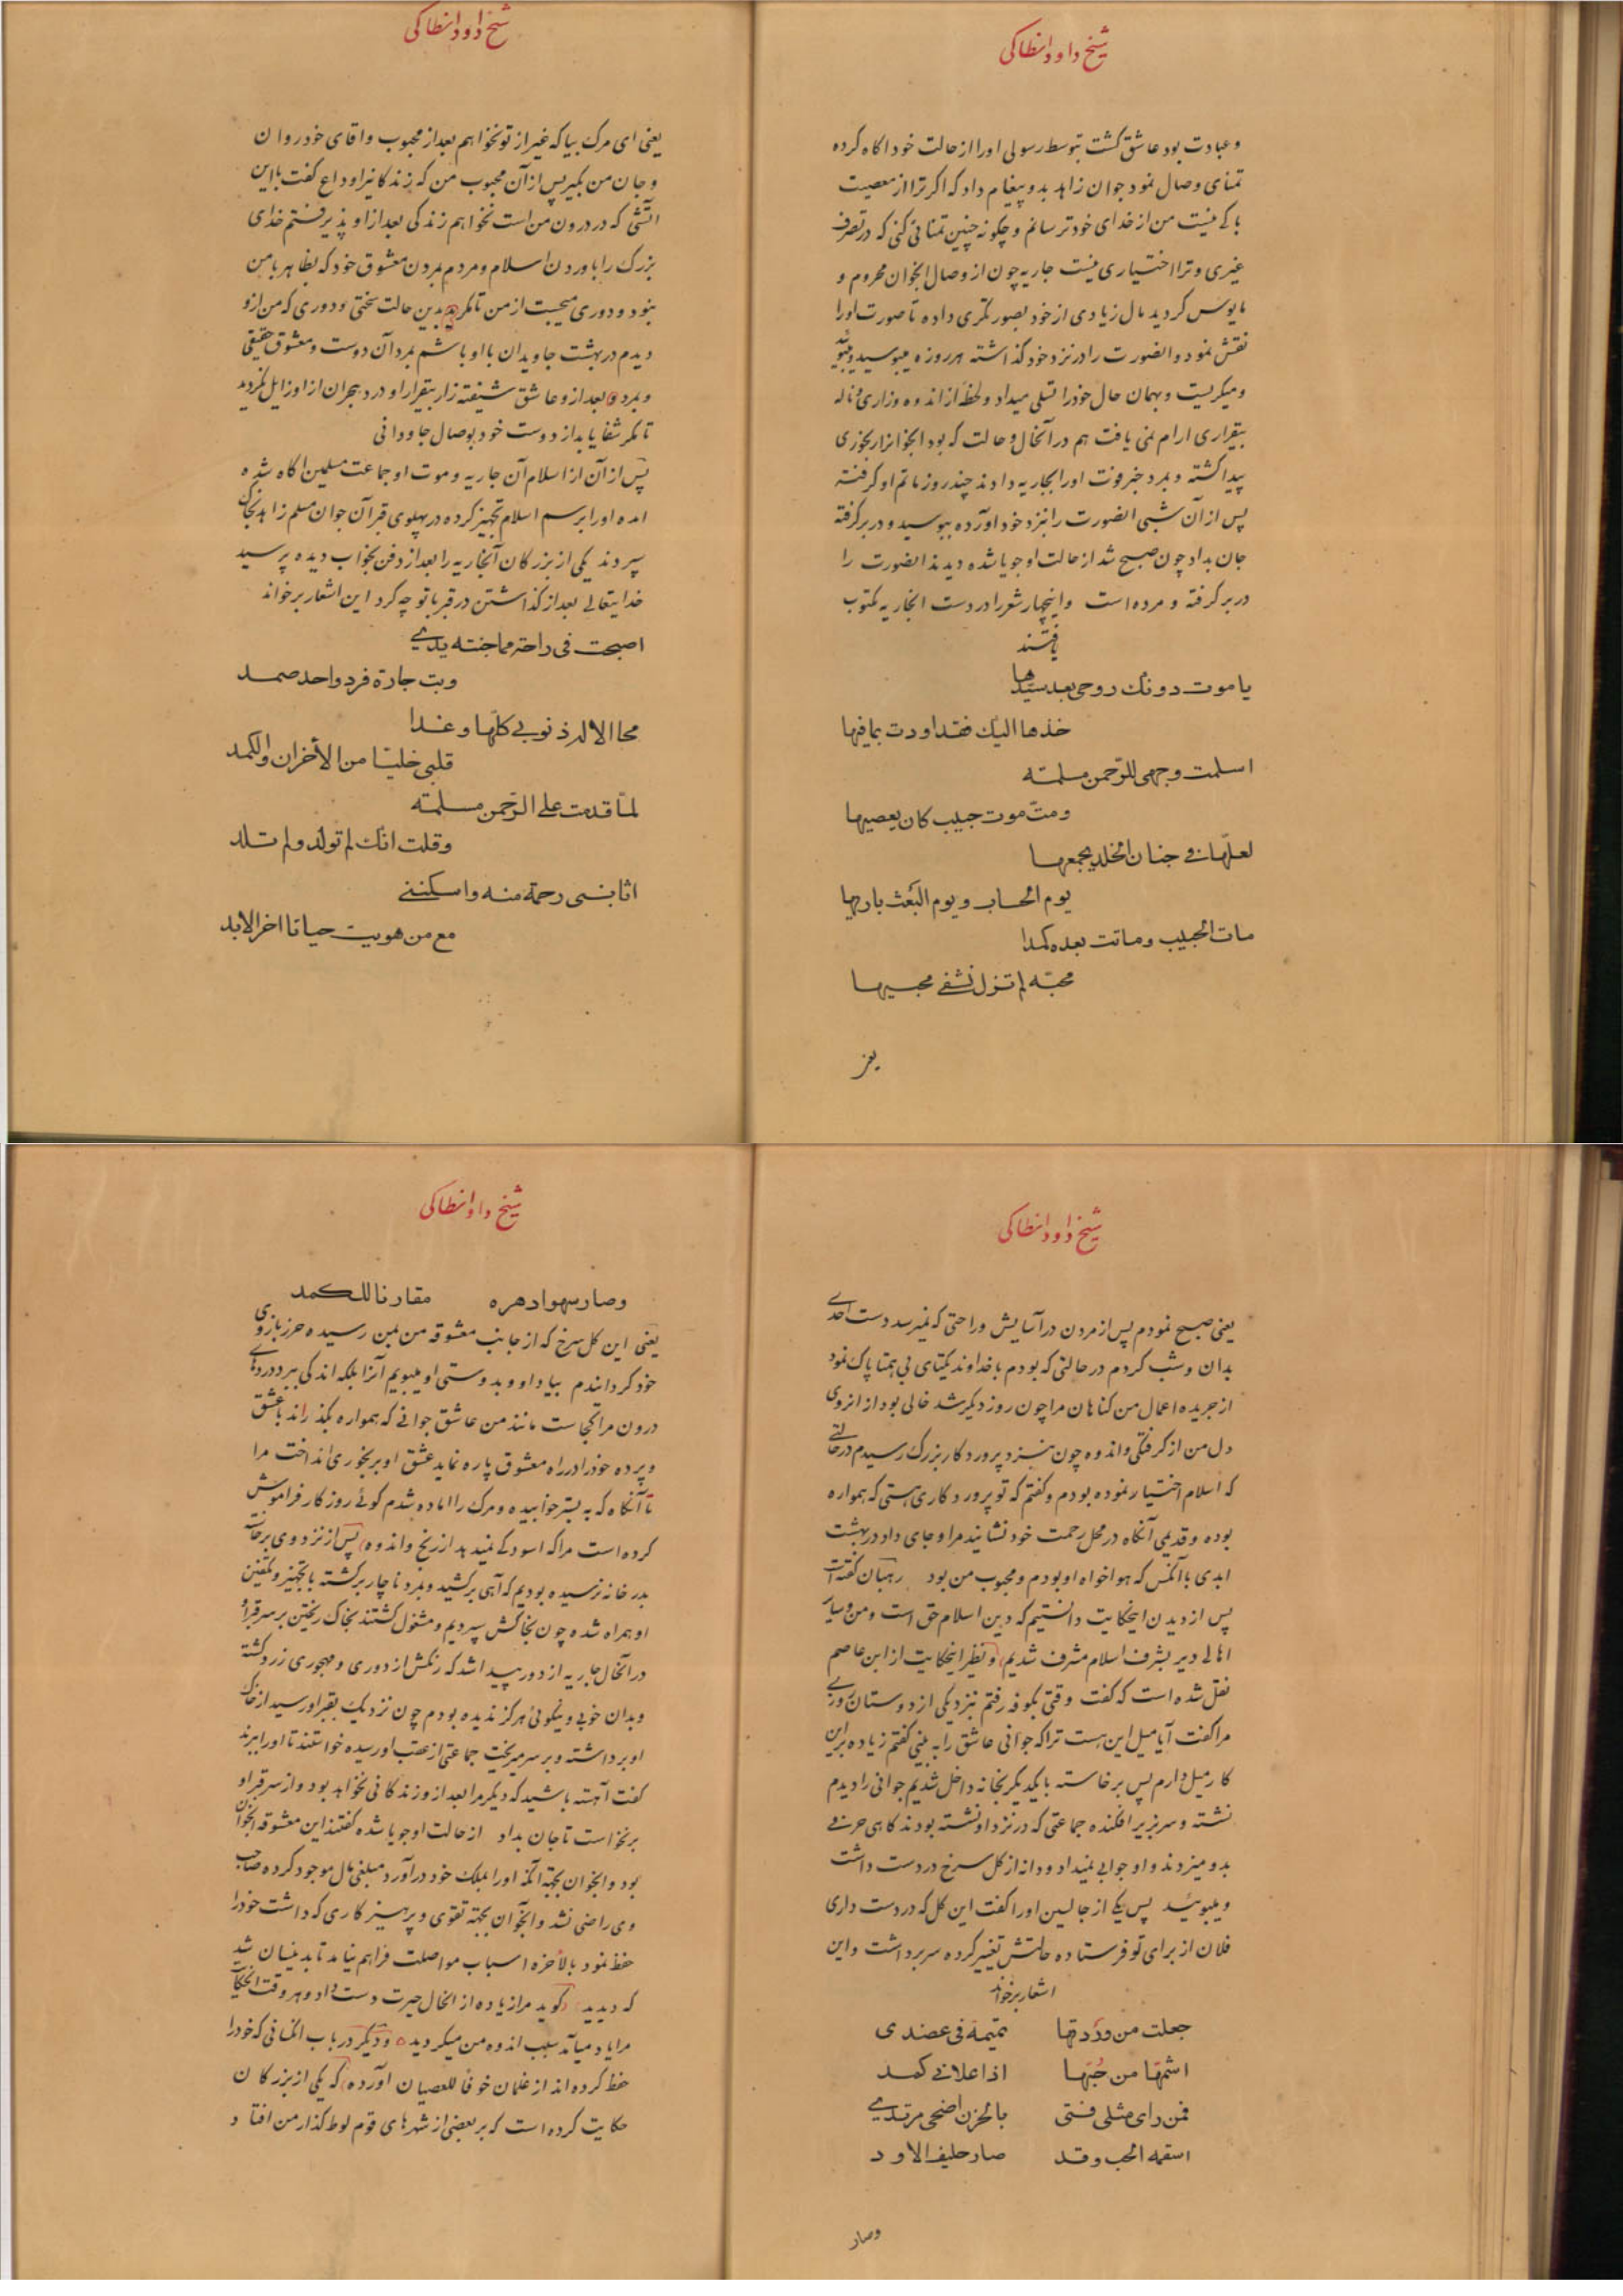 شیخ داود انطاکی
و عبادت بود عاشق کشت بتوسط رسولی اورا از حالت خود اکاه کرده
تمنای وصال نمود جوان زاهد بدو پیغام داد که اکر ترا از معصیت
باکی نیست من از خدای خود ترسانم و چکونه چنین تمنائی کنی که در تصرف
غیری و ترا اختیاری نیست جاریه چون از وصال انجوان محروم و
مایوس کردید مال زیادی از خود بصورتکری داده تا صورت اورا
نقش نمود و انصورت را در نزد خود کذاشته هر روزه میبوسید و میبوئید
و میکریست و بهمان حال خودرا تسلی میداد و لحظهٔ از اندوه و زاری و ناله
بیقراری ارام نمی یافت هم در آنحال و حالت که بود انجوانرا رنجوری
پیدا کشته و بمرد خبر فوت اورا بجاریه دادند چند روز ماتم او کرفته
پس از آن شبی انصورت را بنزد خود اورده ببوسید و در بر کرفته
جان بداد چون صبح شد از حالت او جویا شده دیدند انصورت را
در بر کرفته و مرده است و اینچهار شعر را در دست انجاریه مکتوب
یافتند
یا موت دونک روحی بعد سیدها
خذها الیک فقد اودت بمافیها
اسلمت وجهی للرحمن مسلمته
ومت موت حبیب کان یعصیها
لعلها فی جنان الخلد یجمعها
یوم الحساب و یوم البعث باریها
مات الحبیب و ماتت بعده کمدا
محبه لم تزل تشفی محبیها
یعنی
شیخ داود انطاکی
یعنی ای مرک بیا که غیر از تو نخواهم بعد از محبوب و اقای خود روان
و جان من بکیر پس از آن محبوب من که زندکانیرا وداع کفت با این
اتشی که در درون من است نخواهم زندکی بعد از او پذیرفتم خدای
بزرک را باوردن اسلام و مردم بمردن معشوق خود که بظاهر با من
نبود و دوری میجست از من تا مکر بدین حالت سختی و دوری که من از و
دیدم در بهشت جاویدان با او باشم بمرد آن دوست و معشوق حقیقی
و بمرد بعد از و عاشق شیفته زار بیقرار او درد هجران از او زایل نکردید
تا مکر شفا یابد از دوست خود بوصال جاودانی
پس از آن از اسلام آن جاریه و موت او جماعت مسلمین اکاه شده
امده اورا برسم اسلام تجهیز کرده در پهلوی قبر آن جوان مسلم زاهد بخاک
سپردند یکی از بزرکان آنجاریه را بعد از دفن بخواب دیده پرسید
خدایتعالی بعد از کذاشتن در قبر با تو چه کرد این اشعار برخواند
اصبحت فی راحة مما جنته یدی
وبت جارة فرد واحد صمد
محا الاله ذنوبی کلها و غدا
قلبی خلیتا من الأخزان والکمد
لما قدمت علی الرحمن مسلمته
وقلت انک لم تولد و لم تلد
اثابنی رحمة منه و اسکننی
مع من هویت حیاتا اخر الابد
شیخ داود انطاکی
یعنی صبح نمودم پس از مردن در آسایش و راحتی که نمیرسد دست احدی
بدان و شب کردم در حالتی که بودم با خداوند یکتای بی همتا پاک نمود
از جریده اعمال من کناهان مرا چون روز دیکر شد خالی بود از انروی
دل من از کرفتکی و اندوه چون بنزد پروردکار بزرک رسیدم در حالتی
که اسلام اختیار نموده بودم و کفتم که تو پروردکاری هستی که همواره
بوده و قدیمی آنکاه در محل رحمت خود نشانید مرا و جای داد در بهشت
ابدی با آنکس که هواخواه او بودم و محبوب من بود رهبان کفته است
پس از دیدن اینحکایت دانستیم که دین اسلام حق است و من و سایر
اهالی دیر بشرف اسلام مشرف شدیم و نظیر اینحکایت از ابن عاصم
نقل شده است که کفت وقتی بکوفه رفتم نزد یکی از دوستان روزی
مرا کفت آیا میل این هست ترا که جوانی عاشق را به بینی کفتم زیاده براین
کار میل دارم پس برخاسته با یکدیکر بخانه داخل شدیم جوانی را دیدم
نشسته و سر بزیر افکنده جماعتی که در نزد او نشسته بودند کاهی حرفی
بدو میزدند و او جوابی نمیداد و دانه از کل سرخ در دست داشت
و میبوئید پس یکی از جالسین اورا کفت این کل که در دست داری
فلان از برای تو فرستاده حالتش تغییر کرده سر برداشت و این
اشعار برخواند
جعلت من وردتها تمیمة فی عضدی
اشمها من حبها اذا علانی کمد
فمن رای مثلی فتی بالحزن اضحی مرتدی
اسقمه الحب و قد صار حلیف الاود
وصار
شیخ داود انطاکی
وصار سهوا دهره مقارنا للکمد
یعنی این کل سرخ که از جانب معشوقه من بمن رسیده حرز بازوی
خود کردانیدم بیاد او و بدوستی او میبویم آنرا بلکه اندکی ببرد دردهای
درون مرا کجاست مانند من عاشق جوانی که همواره بکذراند با عشق
و پرده خودرا در راه معشوق پاره نماید عشق او برنجوری انداخت مرا
تا آنکاه که به بستر خوابیده و مرک را اماده شدم کوئی روزکار فراموش
کرده است مرا که اسودکی نمیدهد از رنج و اندوه پس از نزد وی برخاسته
بدر خانه نرسیده بودیم که آهی برکشید و بمرد ناچار برکشته با تجهیز و تکفین
او همراه شده چون بخاکش سپردیم و مشغول کشتند بخاک ریختن بر سر قبر او
در آنحال جاریه از دور پیدا شد که رنکش از دوری و مهجوری زرد کشته
و بدان خوبی و نیکوئی هرکز ندیده بودم چون نزدیک بقبر او رسید از خاک
او برداشته و بر سر میریخت جماعتی از عقب او رسیده خواستند تا اورا ببرند
کفت آهسته باشید که دیکر مرا بعد از و زندکانی نخواهد بود و از سر قبر او
برنخواست تا جان بداد از حالت او جویا شده کفتند این معشوقه انجوان
بود و انجوان بجهة آنکه اورا بملک خود درآورد مبلغی مال موجود کرده صاحب
وی راضی نشد و آنجوان بجهة تقوی و پرهیزکاری که داشت خودرا
حفظ نمود بالأخره اسباب مواصلت فراهم نیامد تا بدینسان شد
که دیدید کوید مرا زیاده از انحال حیرت دست داد و هر وقت انحکایت
مرا یاد میآمد سبب اندوه من میکردید و دیکر در باب انکسانی که خودرا
حفظ کرده اند از غلمان خوفا للعصیان آورده که یکی از بزرکان
حکایت کرده است که بر بعضی از شهرهای قوم لوط کذار من افتاد